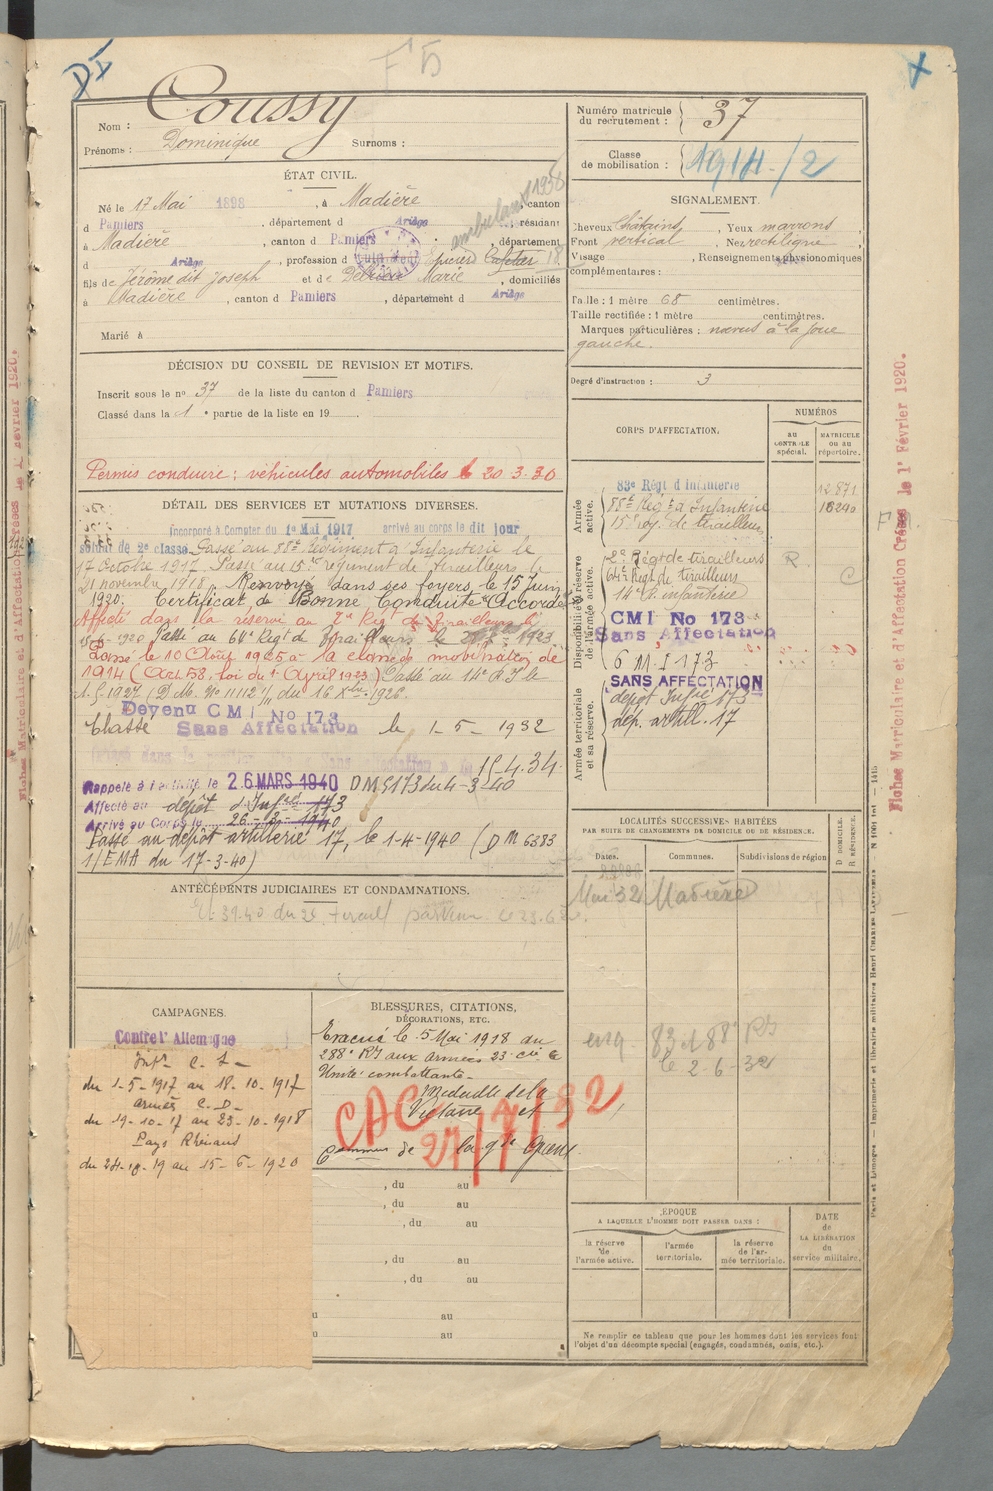 F 5
Nom : Coussy
Prénoms : Dominique Surnoms :
Numéro matricule du recrutement : 37
Classe de mobilisation : 1914/2
ÉTAT CIVIL.
Né le 17 Mai 1898, à Madière, canton
d Pamiers, département d Ariège, résidant
à Madière, canton d Pamiers, département
d Ariège, profession d Épicier Cafetier
ambulant 1938
fils de Jérôme dit Joseph et de Marie, domiciliés
à Madière, canton d Pamiers, département d Ariège
Marié à
SIGNALEMENT.
Cheveux Châtains, Yeux marrons
Front vertical, Nez rectiligne
Visage , Renseignements physionomiques
complémentaires :
Taille : 1 mètre 68 centimètres.
Taille rectifiée : 1 mètre centimètres.
Marques particulières : nævus à la joue
gauche.
Degré d'instruction : 3
DÉCISION DU CONSEIL DE REVISION ET MOTIFS.
Inscrit sous le no 37 de la liste du canton d Pamiers
Classé dans la 1e partie de la liste en 19
Permis conduire : véhicules automobiles le 20.3.30
DÉTAIL DES SERVICES ET MUTATIONS DIVERSES.
Incorporé à Compter du 1er Mai 1917 arrivé au corps le dit jour
soldat de 2e classe. Passé au 88e Régiment d'Infanterie le
17 Octobre 1917. Passé au 15e régiment de tirailleurs le
21 novembre 1918. Renvoyé dans ses foyers le 15 Juin
1920. Certificat de Bonne Conduite "Accordé"
Affecté dans la réserve au 2e Rég de Tirailleurs le
15-6-1920 Passé au 64e Régt de Tirailleurs le 1923
Passé le 10 Août 1925 à la classe de mobilisation de
1914 (Art 58, loi du 1er Avril 1923) Passé au 14e R.I. le
1.5.1927 (D.M. No 11112 1/11 du 16 Xbre 1926.
Devenu CMI No 173
Classé Sans Affectation le 1-5-1932
15.4.34.
Rappelé à l'activité le 26 MARS 1940 DM 5173 du 4-3-40
Affecté au dépôt d'Infrie 173
Arrivé au Corps le 26-3-1940
Passé au dépôt artillerie 17, le 1-4-1940 (DM 6383
1/EMA du 17-3-40)
CORPS D'AFFECTATION.
NUMÉROS
au CONTRÔLE spécial.
MATRICULE ou au répertoire.
Armée active.
83e Régt d'Infanterie 12871
88e Régt d'Infanterie 16290
15e Rég. de tirailleurs
Disponibilité et réserve de l'armée active.
2e Régt de tirailleurs R.
64e Régt de tirailleurs C
14e R. infanterie
CMI No 173
Sans Affectation
6 11-I 173
Armée territoriale et sa réserve.
SANS AFFECTATION
dépôt Infie 173
dép. artill. 17
LOCALITÉS SUCCESSIVES HABITÉES
PAR SUITE DE CHANGEMENTS DE DOMICILE OU DE RÉSIDENCE.
Dates. Communes. Subdivisions de région D DOMICILE. R RÉSIDENCE.
Mai 32 Madière
ANTÉCÉDENTS JUDICIAIRES ET CONDAMNATIONS.
CAMPAGNES.
Contre l'Allemagne
Intr C. S
du 1-5-1917 au 18-10-1917
armées C. D
du 19-10-17 au 23-10-1918
Pays Rhénans
du 24-10-19 au 15-6-1920
BLESSURES, CITATIONS,
DÉCORATIONS, ETC.
Evacué le 5 Mai 1918 du
288e RI aux armées 23e cie
Unité combattante
Médaille de la
Victoire et
Commve de la gde Guerre
CAC
27/7/32
, du au
, du au
, du au
, du au
, du au
au
au
83 et 88e RI
le 2-6-32
ÉPOQUE
A LAQUELLE L'HOMME DOIT PASSER DANS :
la réserve de l'armée active.
l'armée territoriale.
la réserve de l'armée territoriale.
DATE de LA LIBÉRATION du service militaire.
Ne remplir ce tableau que pour les hommes dont les services font
l'objet d'un décompte spécial (engagés, condamnés, omis, etc.).
Fiches Matriculaire et d'Affectation Créées le 1er Février 1920.
Paris et Limoges. — Imprimerie et librairie militaires Henri CHARLES-LAVAUZELLE